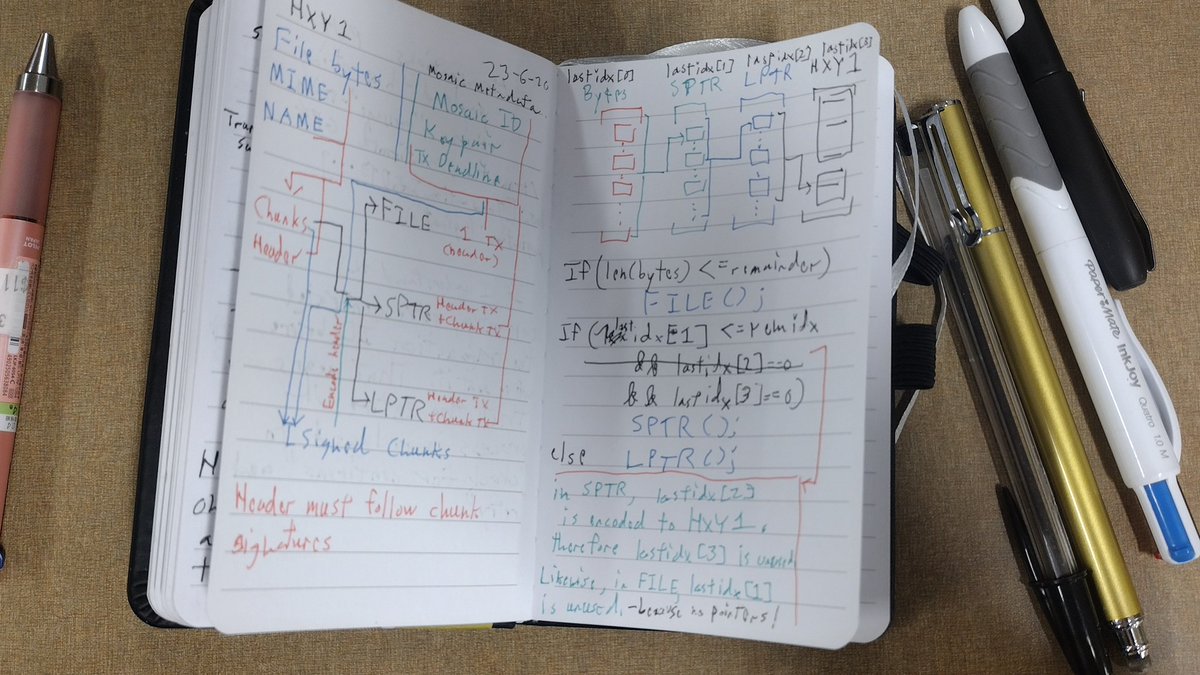 HXY1
File bytes
MIME
NAME
23-6-26
Mosaic Metadata
Mosaic ID
Keypair
Tx Deadline
Chunks
Header
FILE
1 TX
(header)
SPTR
Header TX
+Chunk TX
Encode header
LPTR
Header TX
+Chunk TX
Signed Chunks
Header must follow chunk
signatures
lastidx[0]
Bytes
lastidx[1]
SPTR
lastidx[2]
LPTR
lastidx[3]
HXY1
If(len(bytes) <= remainder)
FILE();
If (lastidx[1] <= remidx
&& lastidx[2]==0
&& lastidx[3]==0)
SPTR();
else LPTR();
in SPTR, lastidx[2]
is encoded to HXY1,
therefore lastidx[3] is unused
Likewise, in FILE, lastidx[1]
is unused, -because no pointers!
PILOT
JAPAN
paper:mate InkJoy Quatro 1.0 M